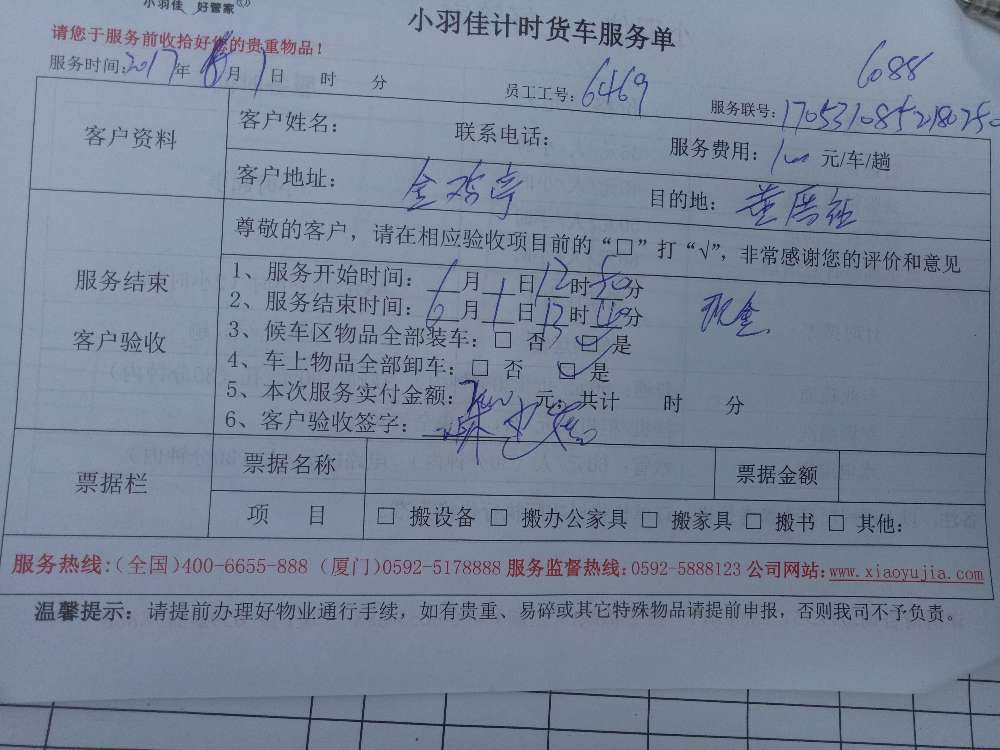 小羽佳 好管家
小羽佳计时货车服务单
请您于服务前收拾好您的贵重物品！
6088
服务时间：2017年 月1日 时 分 员工工号：6469 服务联号：170531085218025
客户资料
客户姓名： 联系电话： 服务费用：100元/车/趟
客户地址： 金鸡亭 目的地：
服务结束
客户验收
尊敬的客户，请在相应验收项目前的“□”打“√”，非常感谢您的评价和意见
1、服务开始时间：6月1日12时50分
2、服务结束时间：6月1日13时 分 现金
3、候车区物品全部装车：□ 否 □ 是
4、车上物品全部卸车：□ 否 □ 是
5、本次服务实付金额： 元；共计 时 分
6、客户验收签字：
票据栏
票据名称 票据金额
项 目 □ 搬设备 □ 搬办公家具 □ 搬家具 □ 搬书 □ 其他：
服务热线:(全国)400-6655-888 (厦门)0592-5178888 服务监督热线:0592-5888123 公司网站:www.xiaoyujia.com
温馨提示：请提前办理好物业通行手续，如有贵重、易碎或其它特殊物品请提前申报，否则我司不予负责。